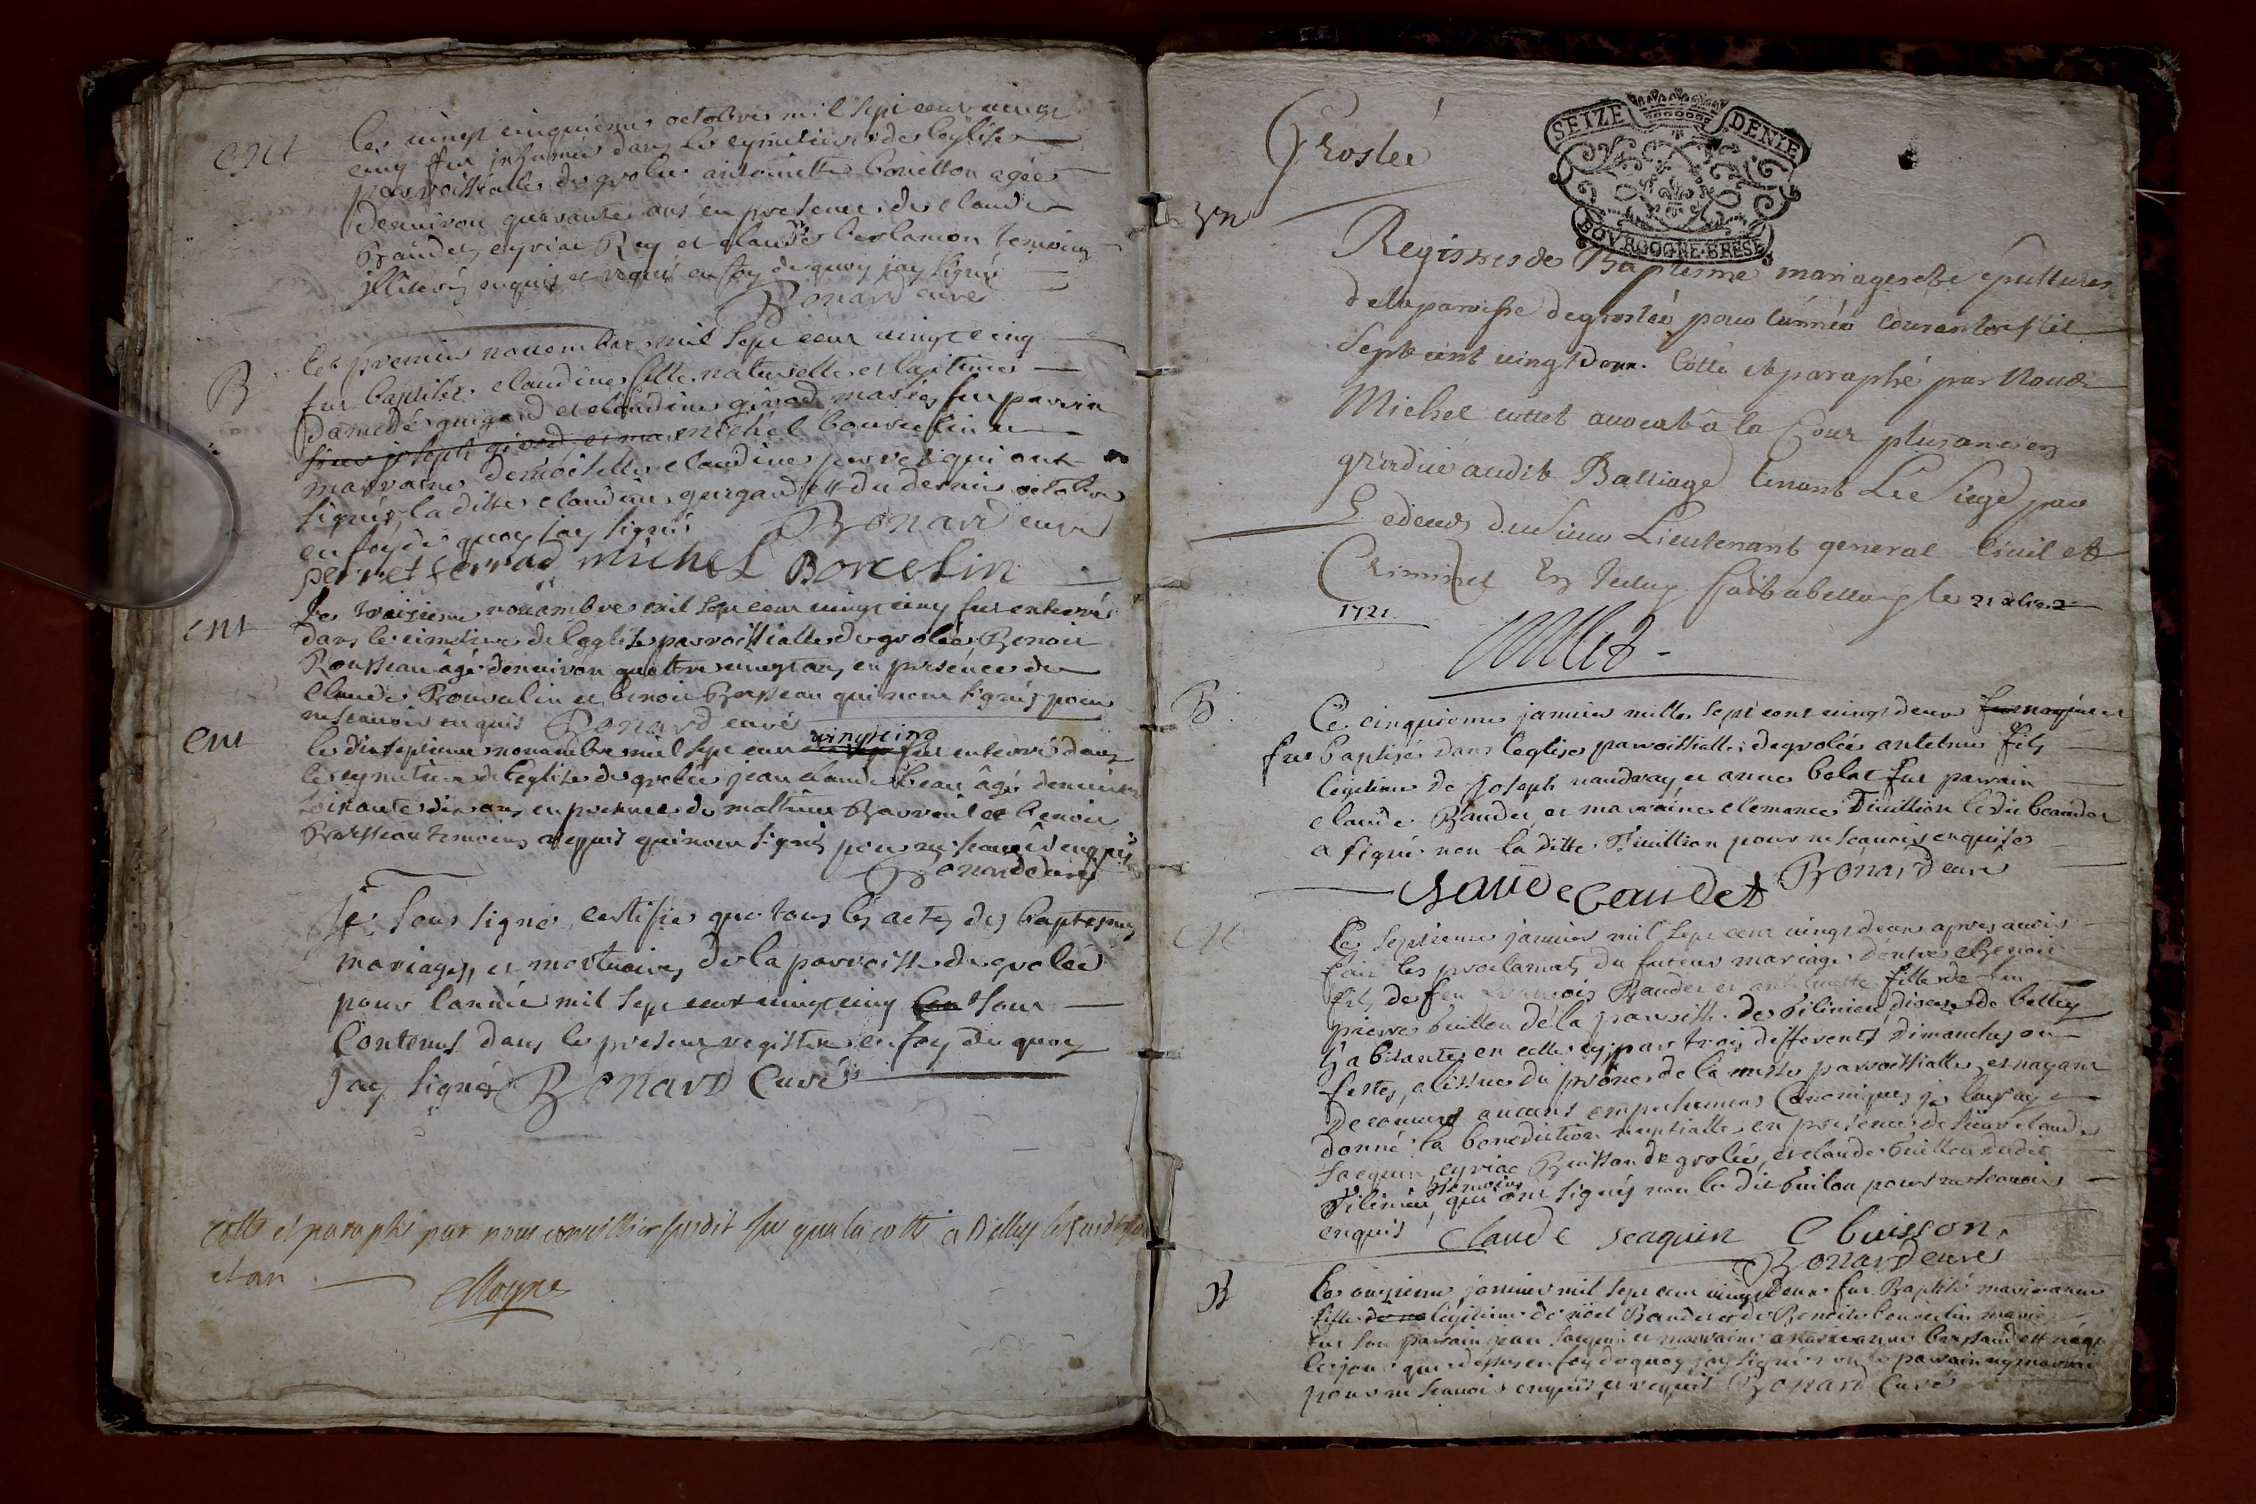 ent
le vingt cinquieme octobre mil sept cent vingt
cinq fut inhumée dans le cymetiere de l'eglise
parroissialle de grolée antoinette bouillon agée
denviron quarante ans en presence de claude
Baudet, cyriac Rey et claude berlamon temoins
illiterés enquis et requis en foy de quoy jay signé
Bonard curé
B
Le premier novembre mil sept cent vingt cinq
fut baptisée claudine fille naturelle et legitime
damedé guigard et claudine girod mariés fut parrain
michel bourcelin et
marraine demoiselle claudine perret qui ont
signés, la ditte claudine guigard est du dernier octobre
en foy de quoy jay signé Bonard curé
perret ferrad michel Borcelin
ent
Le troisieme novembre mil sept cent vingt cinq fut enterré
dans le cimetiere de l'eglise parroissialle de grolée Benoit
Rousseau âgé denviron quattre vingt ans, en presence de
claude Bourcelin et benoit Bresseau qui n'ont signés pour
ne scavoir enquis Bonard curé
ent
vingt cinq
le dix septieme novembre mil sept cent fut enterré dans
le cymetiere de l'eglise de grolée jean claude beau âgé denviron
soixante dix ans, en presence de mathieu Barroil et benoit
Bresseau temoins requis qui n'ont signés pour ne scavoir enquis
Bonard curé
Je sous signé certifie que tous les actes des baptesmes
mariages, et mortuaires de la parroisse de grolée
pour l'année mil sept cent vingt cinq sont
Contenus dans le present registre en foy de quoy
jay signé Bonard Curé
cotté et paraphé par nous conseiller susdit a Belley les jour
et an
Moyne
Groslée
SEIZE DENIE
BOVRGOGNE·BRESE
Registres de Baptesme mariages et sepultures
de la paroisse de groslée pour l'année courante mil
sept cent vingt deux. Cotté et paraphé par Nous
Michel cullet avocat a la Cour plus ancien
gradué audit Balliage tenant Le siege par
Le deces du sieur Lieutenant general Civil et
Criminel fait a belley le 21
1721
Cullet
B
Le cinquieme janvier mille sept cent vingt deux
fut baptisé dans l'eglise parroissialle de grolée antelme fils
legitime de Joseph vaudray et anne bolat fut parrain
claude Baudet et marraine clemance Tuillion le dit baudet
a signé non la ditte Tuillion pour ne scavoir enquise
Bonard curé
claude baudet
Le septieme janvier mil sept cent vingt deux apres avoir
fait les proclamats du futeur mariage dentre Benoit
fils de feu francois Baudet et antoinette fille de feu
pierre buillou de la parroisse de Pilinieu diocese de belley
habitante en celle cy, par trois differents dimanches ou
festes, a l'issue du prône de la messe parroissialle, et nayant
decouvert aucuns empechemens Canoniques je leur ay
donné la benediction nuptialle en presence de sieur claude
Jacquin, cyriac Buisson de grolée, et claude buillou dudit
temoins
Pilinieu, qui ont signés non le dit builou pour ne scavoir
enquis claude jeaquin C buisson
Bonard curé
B
Le onzieme janvier mil sept cent vingt deux fut Baptisé marie anne
fille legitime de noel Baudet et de Benoite bourcelin mariés
fut son parrain jean Jacquin et marraine marie anne
le jour que dessus en foy de quoy jay signé non le parrain ny marraine
pour ne scavoir enquis et requis Bonard Curé